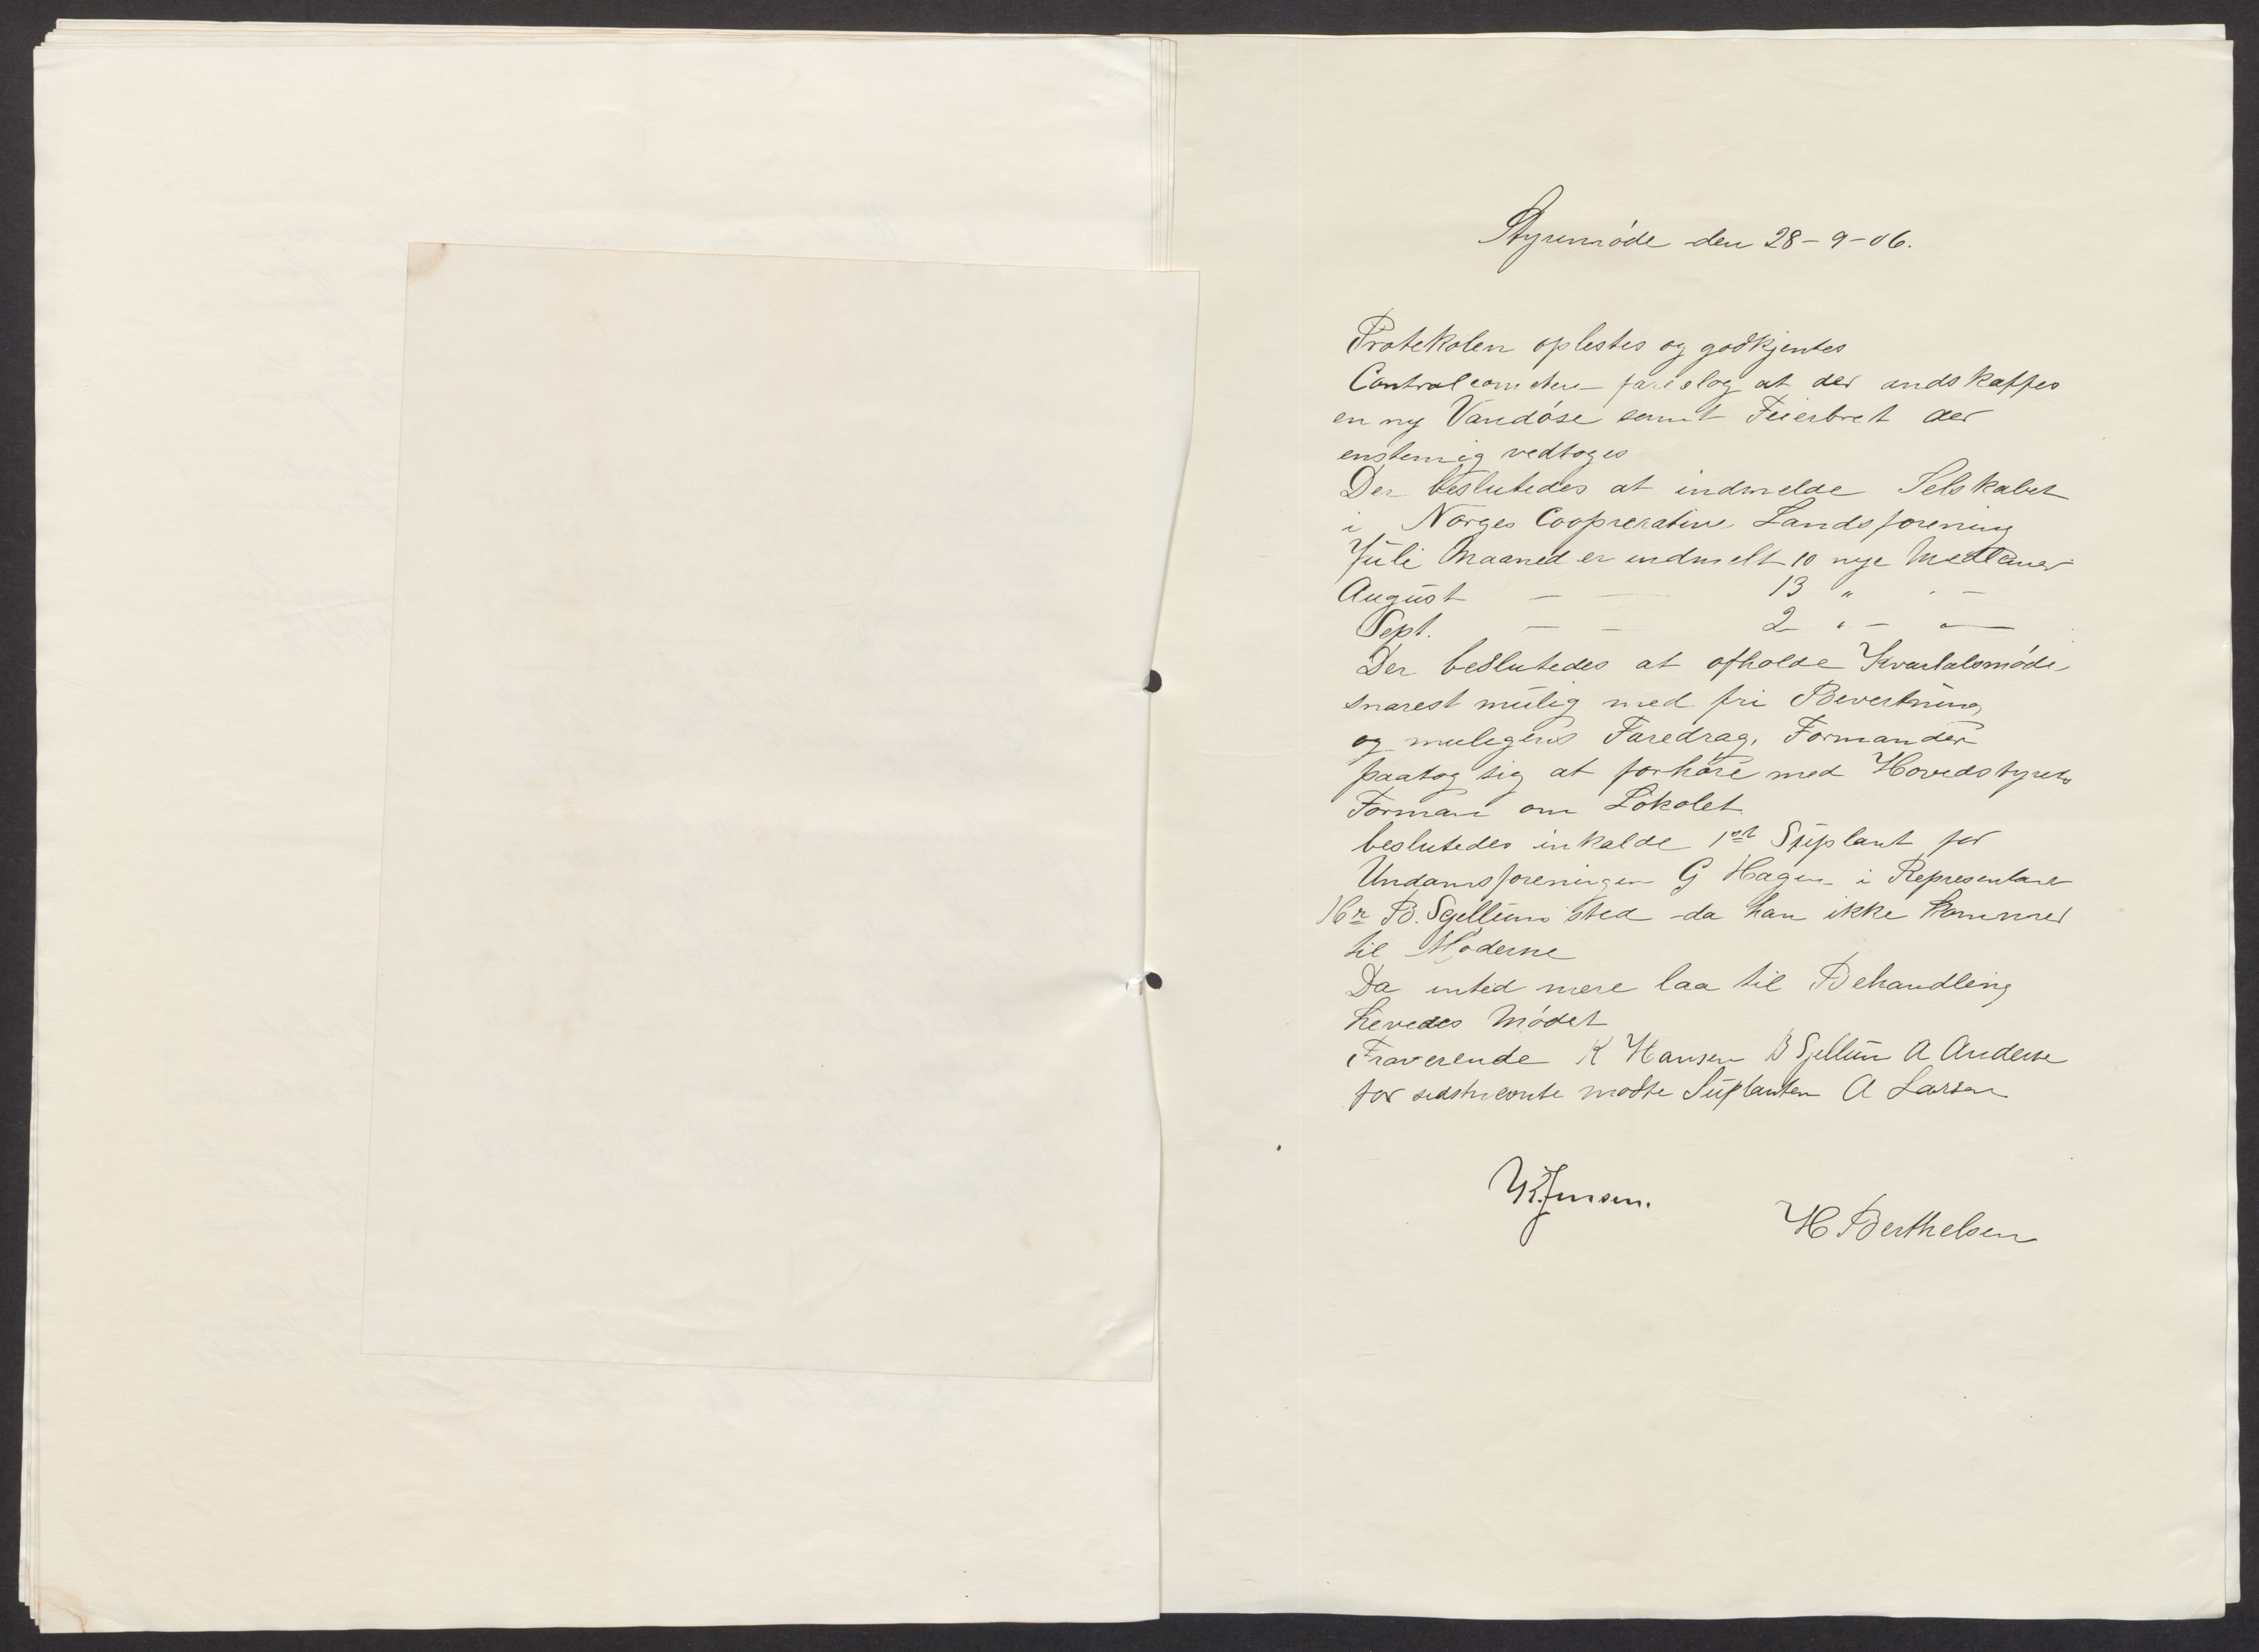 Styremøde den 28-9-06.
Protekolen oplestes og godkjentes
Controlcometen foreslog at der andskaffes
en ny Vandøse samt Feierbret der
enstemig vedtoges
Der beslutedes at indmelde Selskabet
i Norges Cooprerative Landsforening
Juli Maaned er indmelt 10 nye Medlemer
August — — 13 " " —
Sept. — — 2 " — " —
Der beslutedes at afholde Kvartalsmøde
snarest mulig med fri Bevertning
og muligens Foredrag. Formanden
paatog sig at forhøre med Hovedstyrets
Forman om Lokolet
beslutedes inkalde 1st Suplant for
Undomsforeningen G Hagen i Representant
Hr B. Sjellums sted da han ikke kommer
til Møderne
Da inted mere laa til Behandling
hevedes Mødet
Fraverende K Hansen B Sjellum A Anderse
for sidstnevnte møtte Suplanten A Larsen
K. Jensen.
H Berthelsen